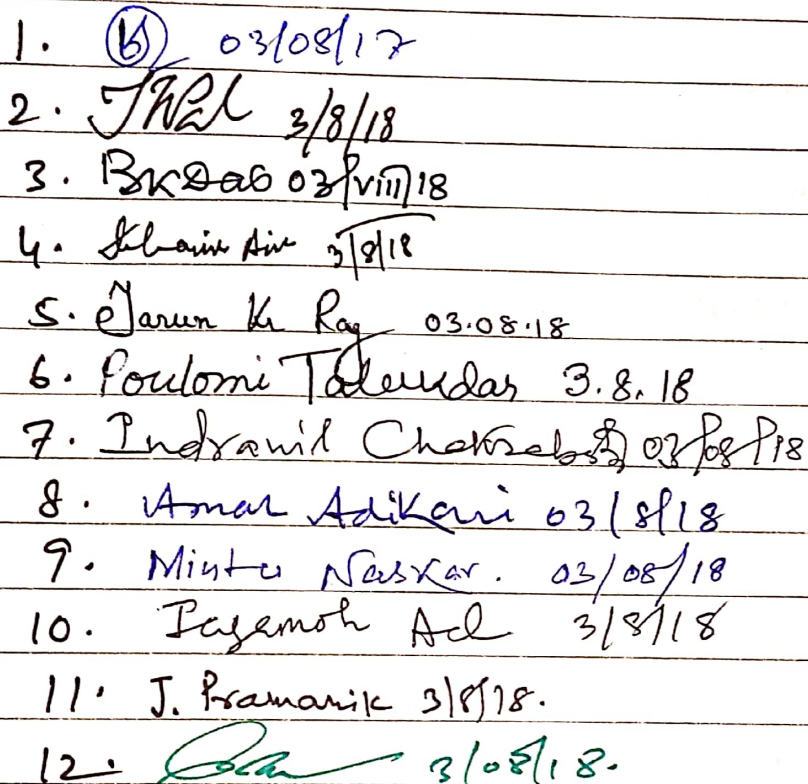 1. 03/08/17
2. 3/8/18
3. BKDas 03/viii/18
4. 3/8/18
5. Tarun Kr Ray 03.08.18
6. Poulomi Talukdar 3.8.18
7. Indranil Chakraborty 03/08/18
8. Amar Adikari 03/8/18
9. Mintu Naskar. 03/08/18
10. 3/8/18
11. J. Pramanik 3/8/18.
12. 3/08/18.